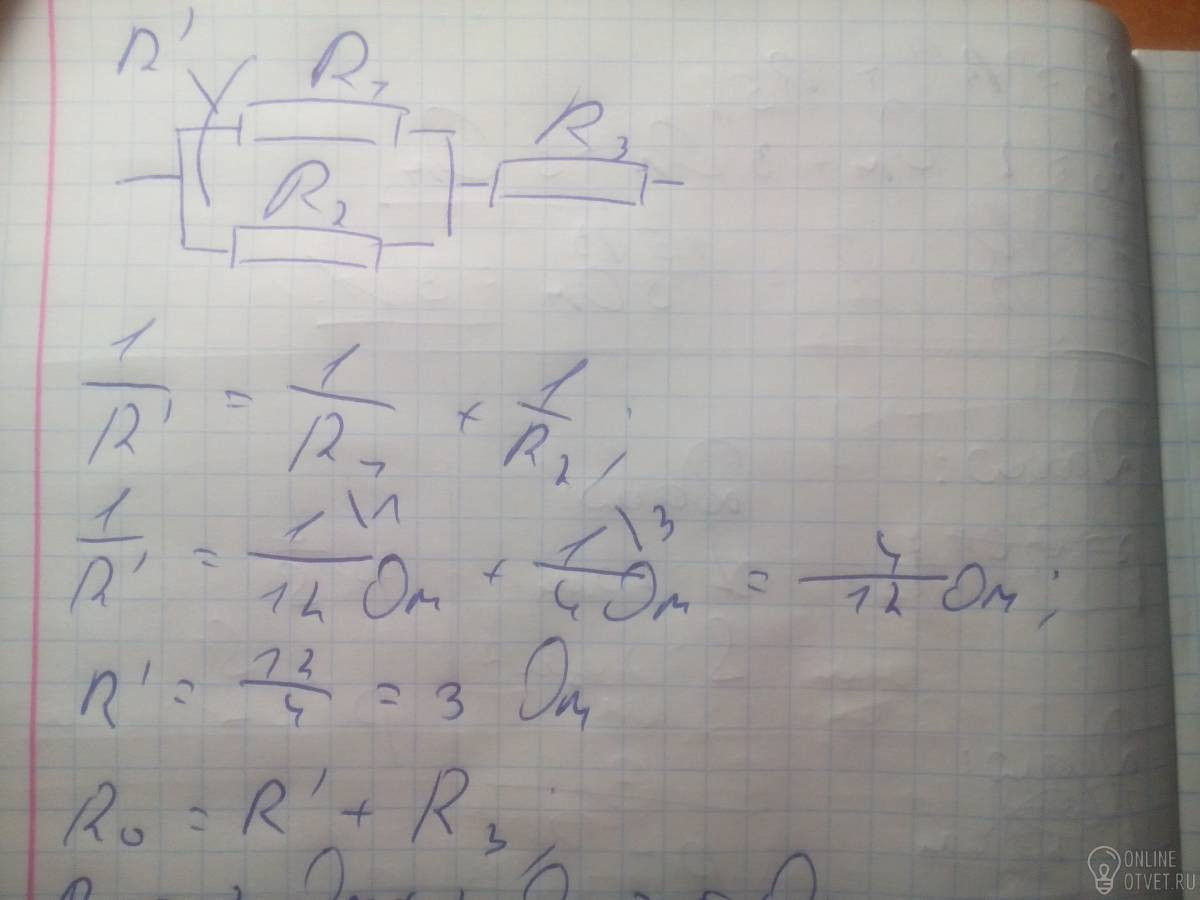 R' R₁
R₃
R₂
1/R' = 1/R₁ + 1/R₂;
1/R' = 1\1/12 Ом + 1\3/4 Ом = 4/12 Ом;
R' = 12/4 = 3 Ом
R₀ = R' + R₃;
ONLINE
OTVET.RU